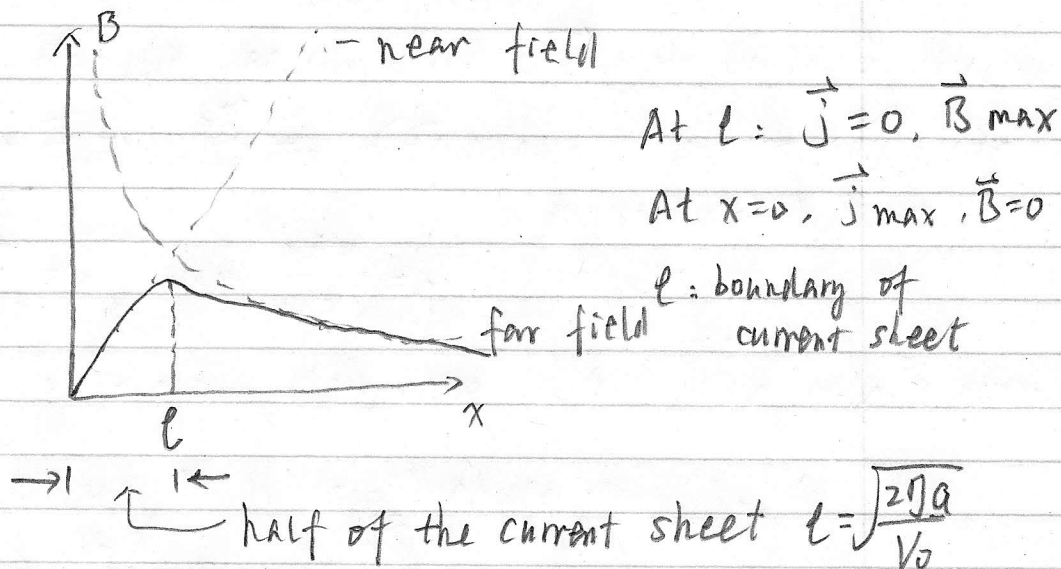 B
- near field
At l: j⃗ = 0, B⃗ max
At x=0, j⃗ max, B⃗=0
l: boundary of
current sheet
far field
x
l
half of the current sheet l = √(2ηa/V₀)